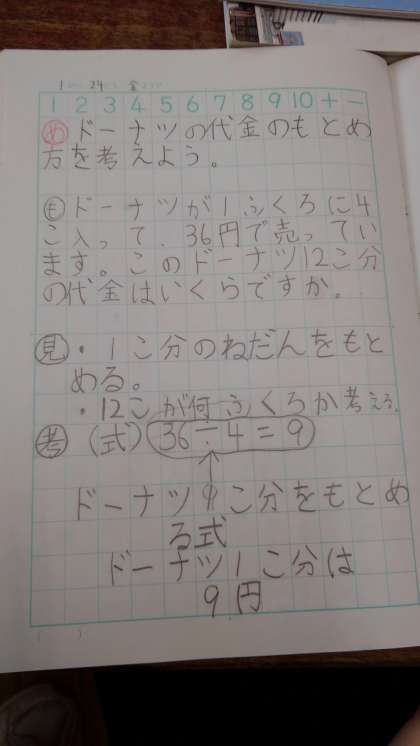 1 24 金
1 2 3 4 5 6 7 8 9 10 + −
め ドーナツの代金のもとめ
方を考えよう。
も ドーナツが1ふくろに4
こ入って、36円で売ってい
ます。このドーナツ12こ分
の代金はいくらですか。
見・1こ分のねだんをもと
める。
・12こが何ふくろか考える。
考 (式) 36÷4=9
↑
ドーナツ1こ分をもとめ
る式
ドーナツ1こ分は
9円
( )